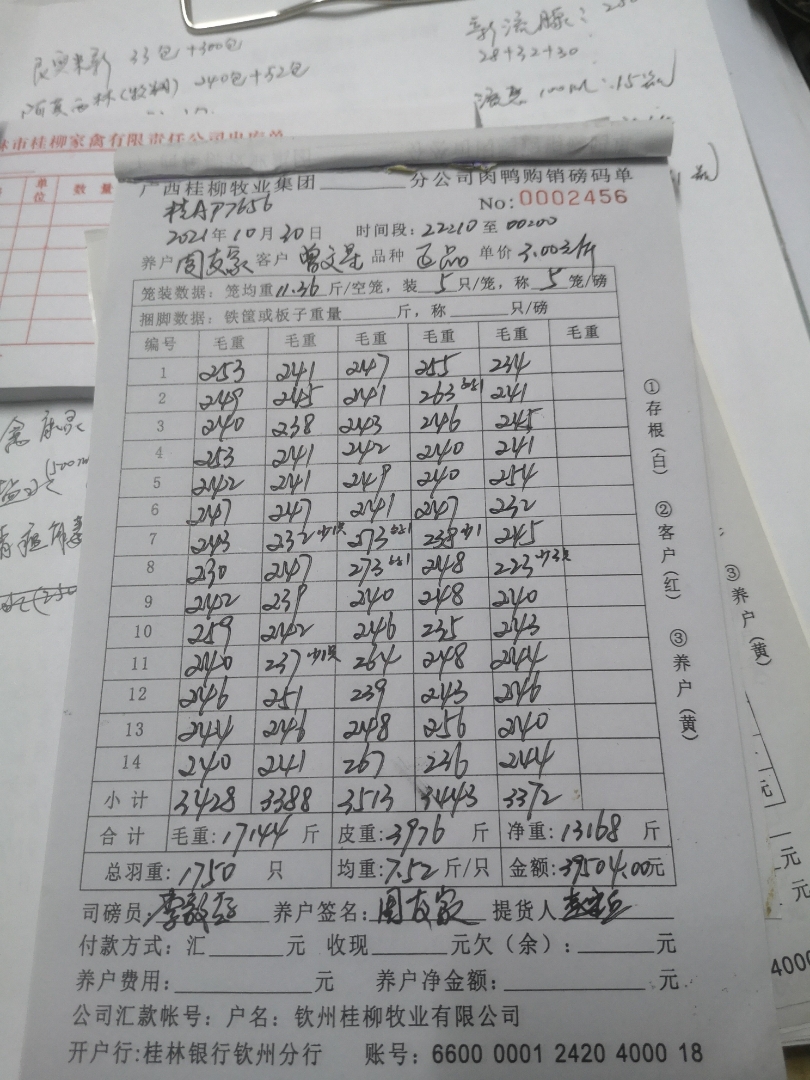 33包+300包
阿莫西林(牧翔) 240包+52包
28+32+30
100ml:15瓶
林市桂柳家禽有限责任公司出库单
单位 数量
广西桂柳牧业集团________分公司肉鸭购销磅码单
桂AP7656
No:0002456
2021年10月30日 时间段:22210至00200
养户周友家 客户 曾文星 品种 正品 单价 3.00元/斤
笼装数据:笼均重11.36斤/空笼,装5只/笼,称5笼/磅
捆脚数据:铁筐或板子重量______斤,称______只/磅
编号 毛重 毛重 毛重 毛重 毛重 毛重
1 253 241 247 255 234
2 249 245 241 263 241
3 240 238 243 246 245
4 253 241 242 240 241
5 242 241 249 240 254
6 247 247 241 247 232
7 243 232少1只 273 238少1 245
8 230 247 273 248 223少3只
9 242 239 240 248 240
10 259 242 246 235 243
11 240 237少1只 264 248 244
12 246 251 239 243 246
13 244 246 248 256 240
14 240 241 267 236 244
小计 3428 3388 3513 3443 3372
合计 毛重:17144 斤 皮重:3976 斤 净重:13168 斤
总羽重:1750 只 均重:7.52斤/只 金额:39504.00元
司磅员: 养户签名:周友家 提货人
付款方式:汇______元 收现______元欠(余):______元
养户费用:________元 养户净金额:________元
公司汇款帐号:户名:钦州桂柳牧业有限公司
开户行:桂林银行钦州分行 账号:6600 0001 2420 4000 18
①存根(白) ②客户(红) ③养户(黄)
③养户(黄)
元
元
元
4000